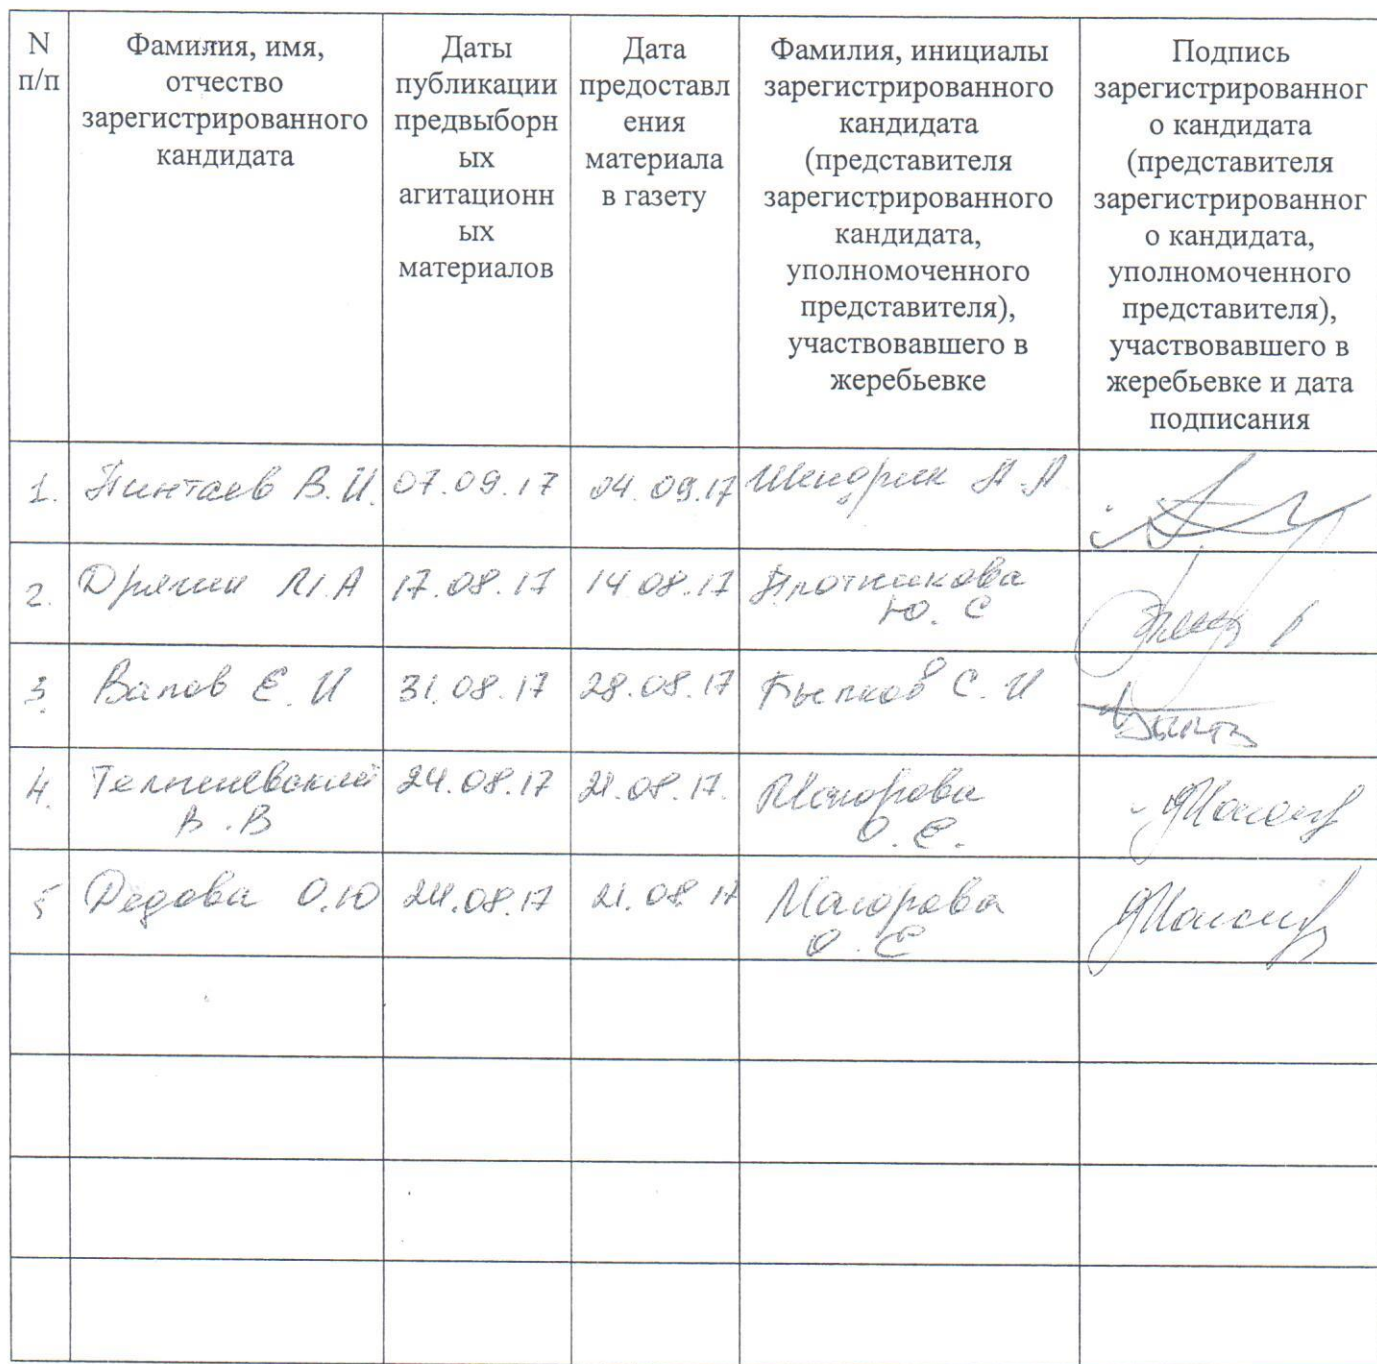 N
п/п
Фамилия, имя,
отчество
зарегистрированного
кандидата
Даты
публикации
предвыборн
ых
агитационн
ых
материалов
Дата
предоставл
ения
материала
в газету
Фамилия, инициалы
зарегистрированного
кандидата
(представителя
зарегистрированного
кандидата,
уполномоченного
представителя),
участвовавшего в
жеребьевке
Подпись
зарегистрированног
о кандидата
(представителя
зарегистрированног
о кандидата,
уполномоченного
представителя),
участвовавшего в
жеребьевке и дата
подписания
1. Пинтаев В.И. 07.09.17 04.09.17 А.А.
2. М.А 17.08.17 14.08.17 Плотникова
Ю. С
3. Е. И 31.08.17 28.08.17 С. И
4. 24.08.17 21.08.17.
В. В О. Е.
5 Дедова О.Ю 24.08.17 21.08.17
О. Е